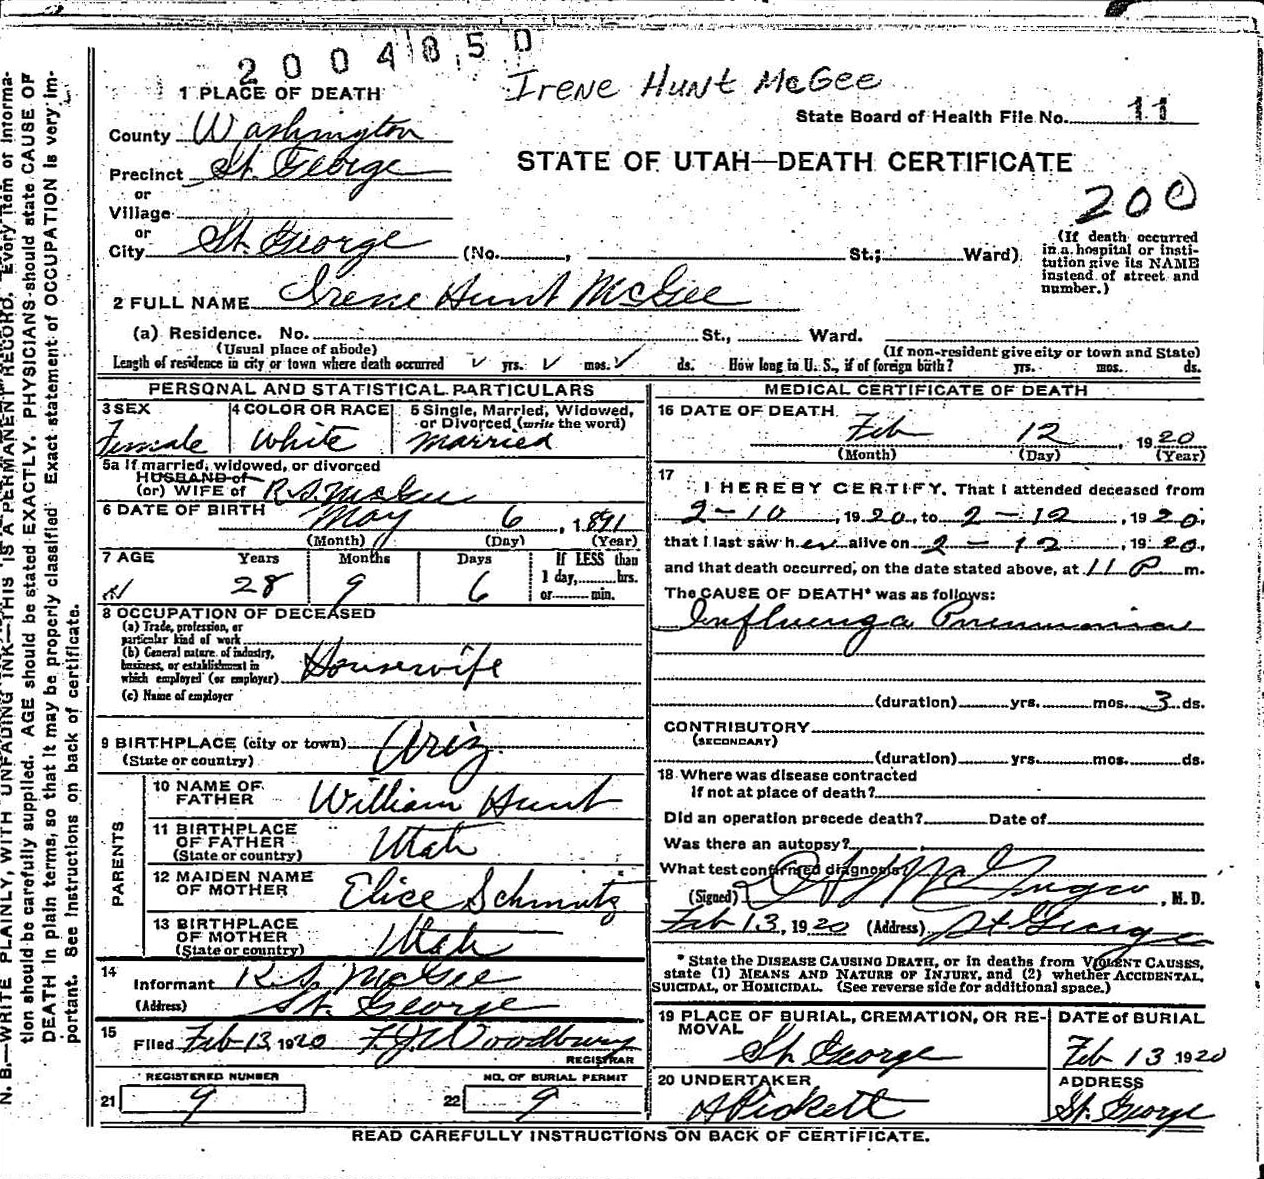 2004850
Irene Hunt McGee
1 PLACE OF DEATH
State Board of Health File No. 11
County Washington
STATE OF UTAH—DEATH CERTIFICATE
Precinct St. George
200
or
Village
or
City St. George (No. , St.; Ward)
(If death occurred in a hospital or institution give its NAME instead of street and number.)
2 FULL NAME Irene Hunt McGee
(a) Residence. No. St., Ward.
(Usual place of abode) (If non-resident give city or town and State)
Length of residence in city or town where death occurred yrs. mos. ds. How long in U. S., if of foreign birth? yrs. mos. ds.
PERSONAL AND STATISTICAL PARTICULARS
3 SEX 4 COLOR OR RACE 5 Single, Married, Widowed, or Divorced (write the word)
Female White Married
5a If married, widowed, or divorced
HUSBAND of
(or) WIFE of R. S. McGee
6 DATE OF BIRTH May 6, 1891
(Month) (Day) (Year)
7 AGE Years Months Days If LESS than
28 9 6 1 day, hrs.
or min.
8 OCCUPATION OF DECEASED
(a) Trade, profession, or
particular kind of work
(b) General nature of industry,
business, or establishment in
which employed (or employer) Housewife
(c) Name of employer
9 BIRTHPLACE (city or town) Ariz.
(State or country)
PARENTS
10 NAME OF FATHER William Hunt
11 BIRTHPLACE OF FATHER Utah
(State or country)
12 MAIDEN NAME OF MOTHER Elice Schmutz
13 BIRTHPLACE OF MOTHER Utah
(State or country)
14
Informant R. S. McGee
(Address) St. George
15
Filed Feb 13, 1920 F. J. Woodbury
REGISTRAR
REGISTERED NUMBER NO. OF BURIAL PERMIT
21 9 22 9
MEDICAL CERTIFICATE OF DEATH
16 DATE OF DEATH
Feb 12, 1920
(Month) (Day) (Year)
17
I HEREBY CERTIFY, That I attended deceased from
2-10, 1920, to 2-12, 1920,
that I last saw her alive on 2-12, 1920,
and that death occurred, on the date stated above, at 11 P m.
The CAUSE OF DEATH* was as follows:
Influenza Pneumonia
(duration) yrs. mos. 3 ds.
CONTRIBUTORY
(SECONDARY)
(duration) yrs. mos. ds.
18 Where was disease contracted
if not at place of death?
Did an operation precede death? Date of
Was there an autopsy?
What test confirmed diagnosis?
(Signed) McGregor, M. D.
Feb 13, 1920 (Address) St George
* State the DISEASE CAUSING DEATH, or in deaths from VIOLENT CAUSES,
state (1) MEANS AND NATURE OF INJURY, and (2) whether ACCIDENTAL,
SUICIDAL, or HOMICIDAL. (See reverse side for additional space.)
19 PLACE OF BURIAL, CREMATION, OR RE- DATE of BURIAL
MOVAL
St. George Feb 13 1920
20 UNDERTAKER ADDRESS
Pickett St. George
READ CAREFULLY INSTRUCTIONS ON BACK OF CERTIFICATE.
N. B.—WRITE PLAINLY, WITH UNFADING INK—THIS IS A PERMANENT RECORD. Every item of informa-
tion should be carefully supplied. AGE should be stated EXACTLY. PHYSICIANS should state CAUSE OF
DEATH in plain terms, so that it may be properly classified. Exact statement of OCCUPATION is very im-
portant. See Instructions on back of certificate.